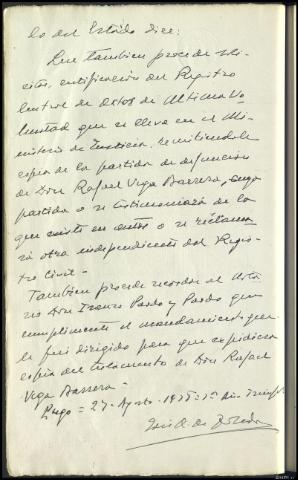 lo del Estado dice:
Que tambien procede soli-
citar, certificación del Registro
Central de Actos de Ultima Vo-
luntad que se lleva en el Mi-
nisterio de Justicia, remitiendole
copia de la partida de defunción
de Don Rafael Vega Barrera, cuya
partida o se testimoniará de la
que existe en autos o se reclama-
rá otra independiente del Regis-
tro Civil.-
Tambien procede recordar al Nota-
rio Don Franco Pardo y Pardo que
cumplimente el mandamiento que
le fué dirigido para que expidiera
copia del testamento de Don Rafael
Vega Barrera-
Lugo = 27-Agosto-1938
José A. de